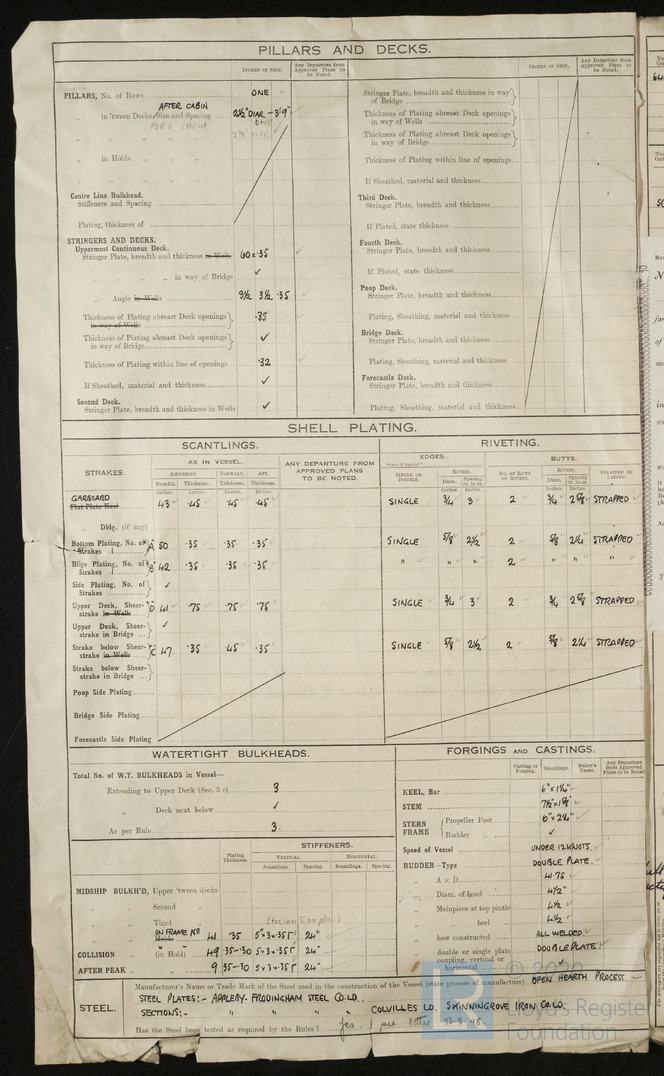 PILLARS AND DECKS.
INCHES IN SHIP.
Any Departure from Approved Plans to be Noted.
PILLARS, No. of Rows ONE
AFTER CABIN
in 'tween Decks, Size and Spacing 2½" DIAR - 3'9"
in Holds
Centre Line Bulkhead.
Stiffeners and Spacing
Plating, thickness of
STRINGERS AND DECKS.
Uppermost Continuous Deck.
Stringer Plate, breadth and thickness in Wells 60 x .35 ✓
" " " " in way of Bridge ✓
" Angle in Wells 3½ 3½ .35 ✓
Thickness of Plating abreast Deck openings in way of Wells .35
Thickness of Plating abreast Deck openings in way of Bridge ✓
Thickness of Plating within line of openings .32
If Sheathed, material and thickness ✓
Second Deck.
Stringer Plate, breadth and thickness in Wells ✓
INCHES IN SHIP.
Any Departure from Approved Plans to be Noted.
Stringer Plate, breadth and thickness in way of Bridge
Thickness of Plating abreast Deck openings in way of Wells
Thickness of Plating abreast Deck openings in way of Bridge
Thickness of Plating within line of openings
If Sheathed, material and thickness
Third Deck.
Stringer Plate, breadth and thickness
If Plated, state thickness
Fourth Deck.
Stringer Plate, breadth and thickness
If Plated, state thickness
Poop Deck.
Stringer Plate, breadth and thickness
Plating, Sheathing, material and thickness
Bridge Deck.
Stringer Plate, breadth and thickness
Plating, Sheathing, material and thickness
Forecastle Deck.
Stringer Plate, breadth and thickness
Plating, Sheathing, material and thickness
SHELL PLATING.
SCANTLINGS.
RIVETING.
STRAKES.
AS IN VESSEL.
ANY DEPARTURE FROM APPROVED PLANS TO BE NOTED.
EDGES.
BUTTS.
AMIDSHIPS. FORWARD. AFT.
Breadth. Thickness. Thickness. Thickness.
SINGLE OR DOUBLE.
RIVETS.
Diam. Spacing cr. to cr.
NO. OF ROWS OF RIVETS.
RIVETS.
Diam. Spacing cr. to cr.
STRAPPED OR LAPPED.
Inches. Inches. Inches. Inches. Inches. Inches. Inches. Inches.
GARBOARD
Flat Plate Keel 43 .45 .45 .45 SINGLE ¾ 3 2 ¾ 2⅝ STRAPPED
" Dblg. (if any)
Bottom Plating, No. of Strakes A 50 .35 .35 .35 SINGLE ⅝ 2½ 2 ⅝ 2¼ STRAPPED
Bilge Plating, No. of Strakes B 42 .35 .35 .35 " " " 2 " " "
Side Plating, No. of Strakes ✓
Upper Deck, Sheerstrake in Wells D 41 .75 .75 .75 SINGLE ¾ 3 2 ¾ 2⅝ STRAPPED
Upper Deck, Sheerstrake in Bridge ✓
Strake below Sheerstrake in Wells C 47 .35 .45 .35 SINGLE ⅝ 2½ 2 ⅝ 2¼ STRAPPED
Strake below Sheerstrake in Bridge
Poop Side Plating
Bridge Side Plating
Forecastle Side Plating
WATERTIGHT BULKHEADS.
Total No. of W.T. BULKHEADS in Vessel—
Extending to Upper Deck (Sec. 3 c) 3
" Deck next below ✓
As per Rule 3
Plating Thickness.
STIFFENERS.
VERTICAL. HORIZONTAL.
Scantlings. Spacing. Scantlings. Spacing.
MIDSHIP BULKH'D, Upper 'tween decks
" Second "
" Third "
ON FRAME No 41 .35 5"x3x.35 24"
COLLISION " (in Hold) 49 .35-.30 5x3x.35 24"
AFTER PEAK " 9 .35-.30 5x3x.35 24"
FORGINGS AND CASTINGS.
Casting or Forging. Scantlings. Maker's Name. Any Departure from Approved Plans to be Noted
KEEL, Bar
STEM
STERN FRAME
Propeller Post
Rudder " ✓
Speed of Vessel UNDER 12 KNOTS.
RUDDER—Type DOUBLE PLATE.
" A × D 41.75
" Diam. of head 4½"
" Mainpiece at top pintle 4½
" heel 4½
" how constructed ALL WELDED.
" double or single plate DOUBLE PLATE.
coupling, vertical or horizontal ✓
STEEL.
Manufacturer's Name or Trade Mark of the Steel used in the construction of the Vessel (state process of manufacture). OPEN HEARTH PROCESS.
STEEL PLATES:- APPLEBY-FRODINGHAM STEEL CO. LD.
SECTIONS:- " " " " COLVILLES LD. SKINNINGROVE IRON CO. LD.
Has the Steel been tested as required by the Rules? Yes.
Lloyd's Register
Foundation